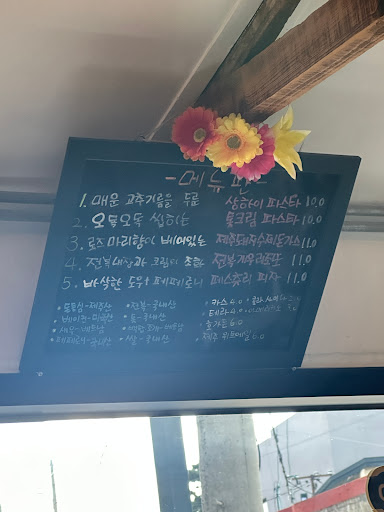 -메뉴판-
1. 매운 고추기름을 두른 상하이 파스타 10.0
2. 오독오독 씹히는 톳크림 파스타 10.0
3. 로즈마리향이 베어있는 제주돼지수제돈가스 11.0
4. 전복내장과 크림의 조합 전복게우리조또 11.0
5. 바삭한 도우+페페로니 페스츄리 피자 11.0
•돈등심-제주산 •전복-국내산 •카스 4.0 •콜라
•베이컨-미국산 •톳-국내산 •테라 4.0
•새우-베트남 •베트남 •6.0
•국내산 •쌀-국내산 •제주 위트에일 6.0